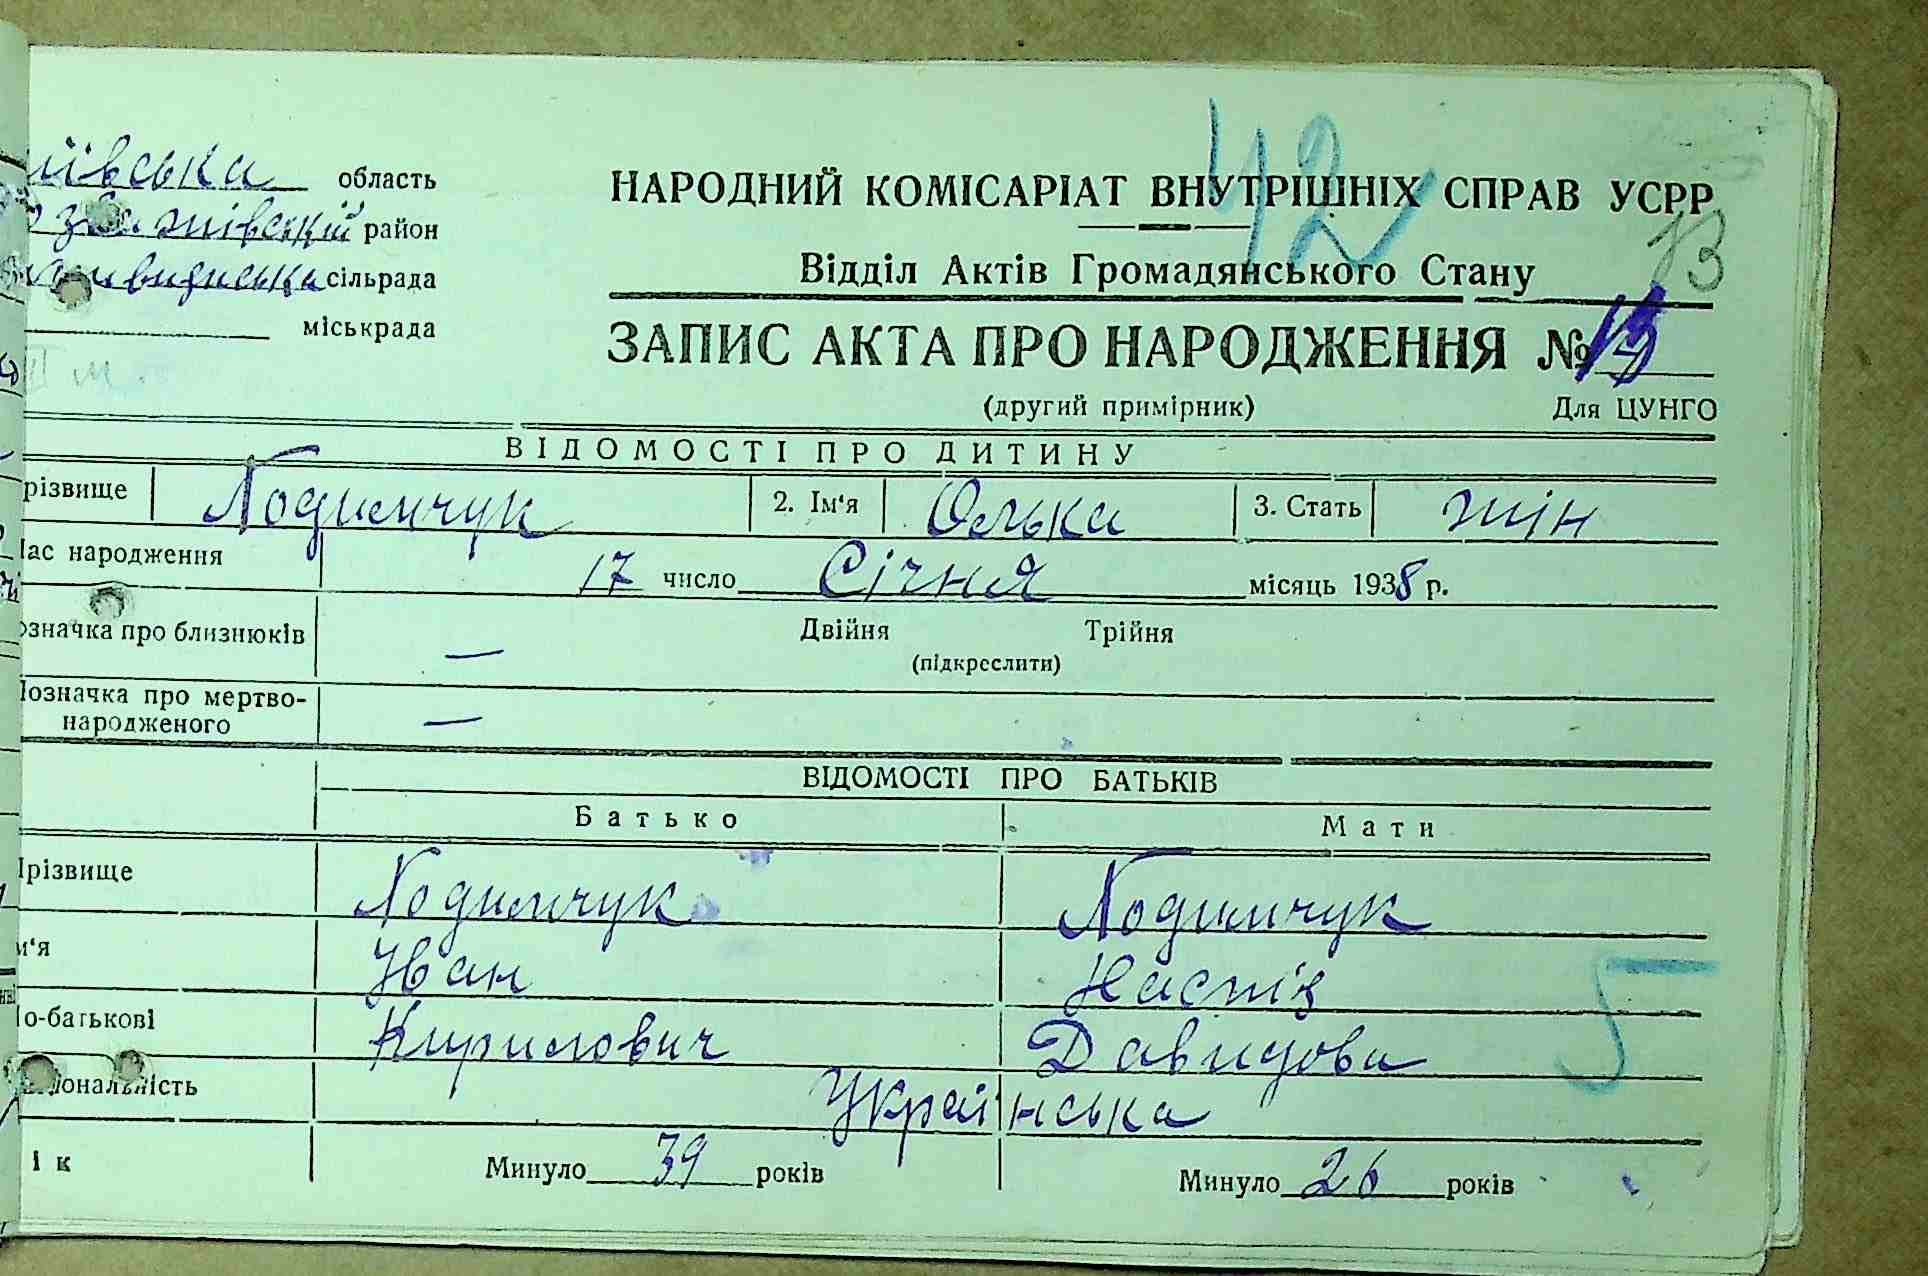 42
ївська область
НАРОДНИЙ КОМІСАРІАТ ВНУТРІШНІХ СПРАВ УСРР
район
13
Відділ Актів Громадянського Стану
сільрада
міськрада
ЗАПИС АКТА ПРО НАРОДЖЕННЯ № 13
(другий примірник) Для ЦУНГО
ВІДОМОСТІ ПРО ДИТИНУ
різвище Ходимчук 2. Ім'я Олька 3. Стать жін
ас народження 17 число Січня місяць 1938 р.
означка про близнюків — Двійня Трійня
(підкреслити)
означка про мертво-
народженого —
ВІДОМОСТІ ПРО БАТЬКІВ
Батько Мати
різвище Ходимчук Ходимчук
м'я Іван Настія
о-батькові Кирилович Давидова
іональність Українська
ік Минуло 39 років Минуло 26 років
5